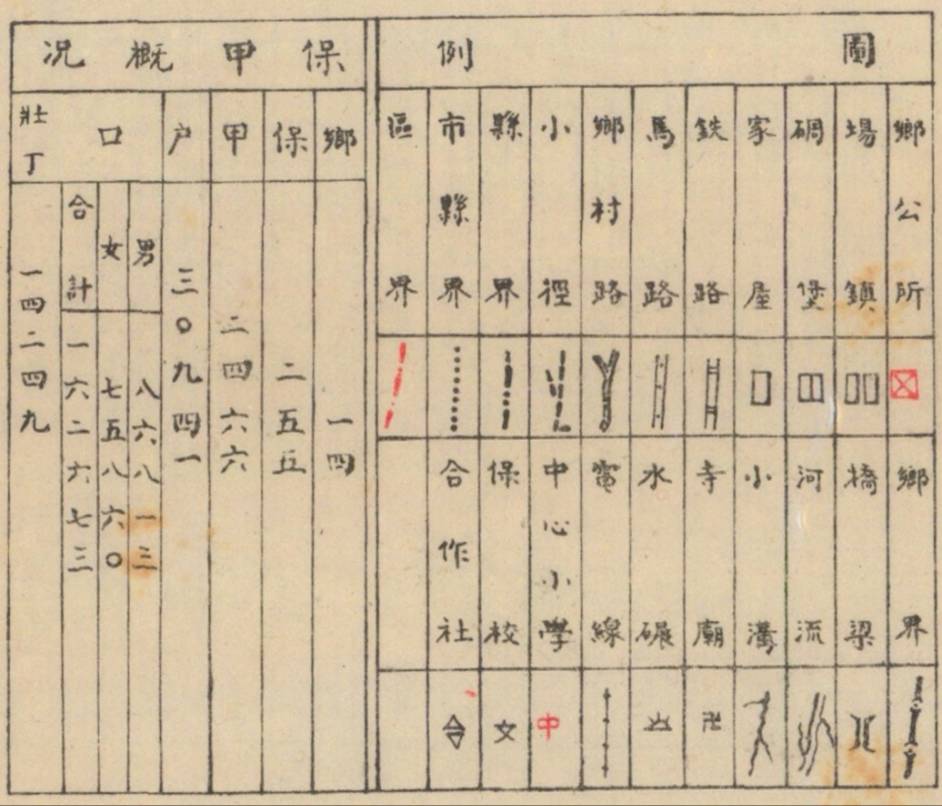 圖例
鄉公所
場鎮
碉堡
家屋
鉄路
馬路
鄉村路
小徑
縣界
市縣界
區界
鄉界
橋梁
河流
小溝
寺廟
卍
水碾
電線
中心小學
中
保校
文
合作社
保甲概況
鄉
保
甲
户
口
壯丁
一四
二五五
二四六六
三〇九四一
男
八六八一三
女
七五八六〇
合計
一六二六七三
一四二四九